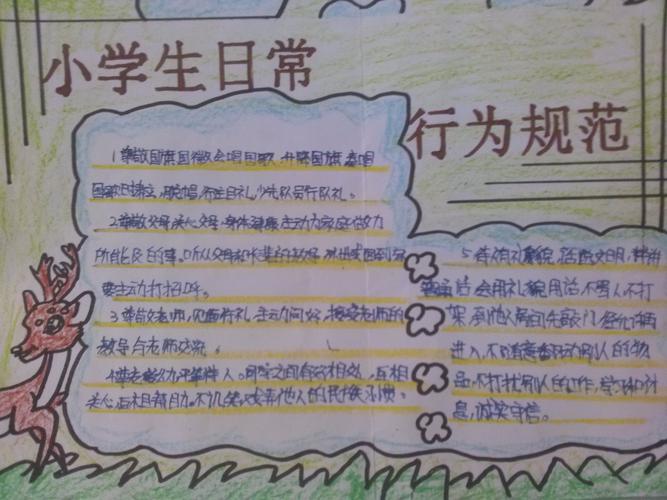 小学生日常
行为规范
1尊敬国旗国徽会唱国歌,升降国旗奏唱
国歌时肃立,脱帽,行注目礼,少先队员行队礼。
2尊敬父母关心父母身体健康主动为家庭做力
所能及的事。听从父母和长辈的教导外出或回到家
要主动打招呼。
3尊敬老师,见面行礼,主动问好,接受老师的
教导与老师交流。
4尊老爱幼平等待人。同学之间友好相处,互相
关心,互相帮助。不讥笑,戏弄他人
5待人有礼貌,说话文明,讲普
通话会用礼貌用语,不骂人不打
架,到他人房间先敲门,经允许再
进入,不随意翻动别人的物
品,不打扰别人的工作,学习和休
息,诚实守信。